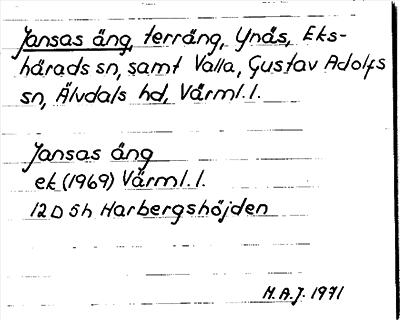 Jansas äng, terräng, Ynås, Eks-
härads sn, samt Valla, Gustav Adolfs
sn, Älvdals hd, Värml. l.
Jansas äng
ek (1969) Värml. l.
12 D 5h Harbergshöjden
M.A.J. 1971